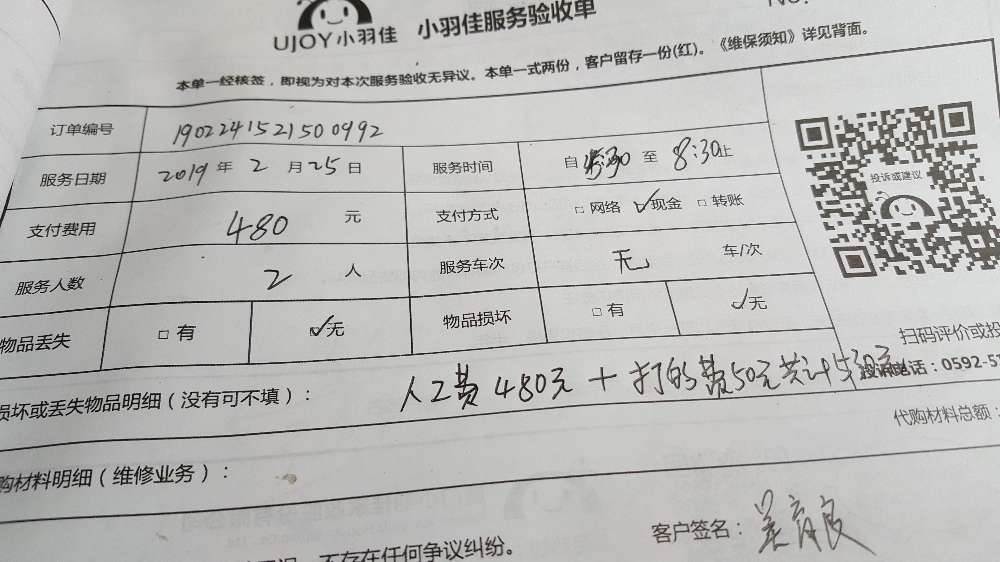 UJOY小羽佳 小羽佳服务验收单
本单一经核签，即视为对本次服务验收无异议。本单一式两份，客户留存一份(红)。《维保须知》详见背面。
订单编号 1902241521500992
服务日期 2019年2月25日 服务时间 自 至 8:30止
支付费用 480 元 支付方式 □网络 ☑现金 □转账
服务人数 2 人 服务车次 无 车/次
物品丢失 □有 ☑无 物品损坏 □有 ☑无
投诉或建议
扫码评价或投
投诉电话：0592-5
损坏或丢失物品明细（没有可不填）： 人工费480元+打的费50元共计
代购材料总额：
购材料明细（维修业务）：
客户签名：
不存在任何争议纠纷。